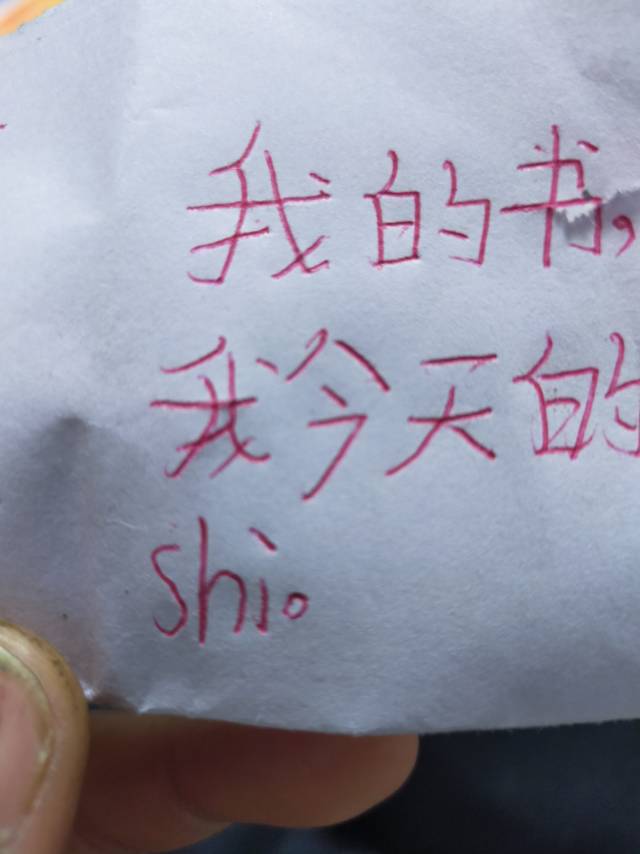 我的书,
我今天的
shi。